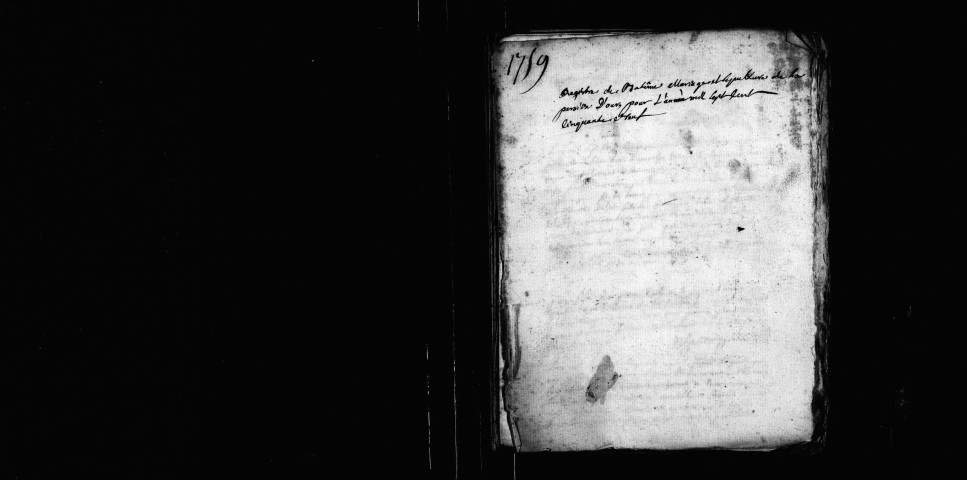 1759
Registre de Batême Mariage et sepulture de la
paroisse D'ours pour L'année mil sept Cent
Cinquante et neuf